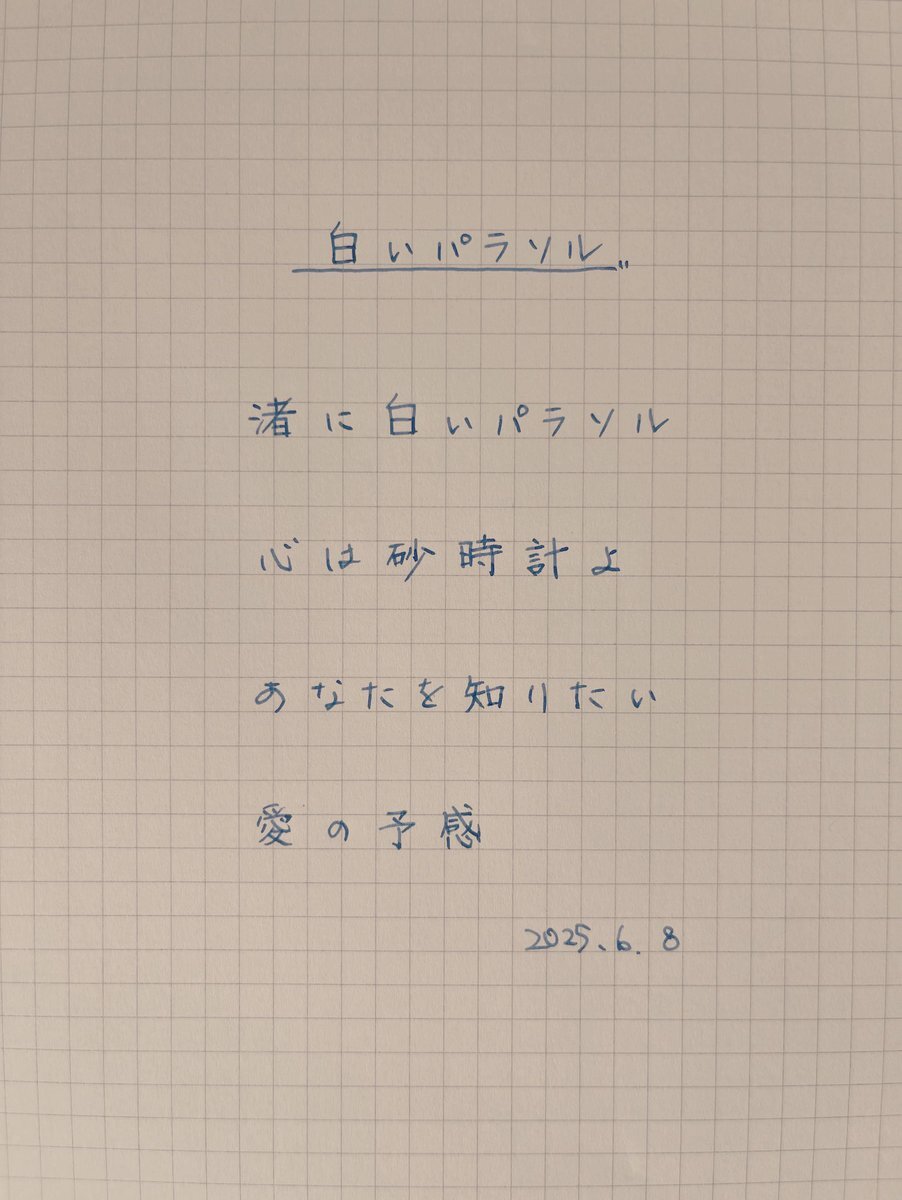 白いパラソル
渚に白いパラソル
心は砂時計よ
あなたを知りたい
愛の予感
2025.6.8